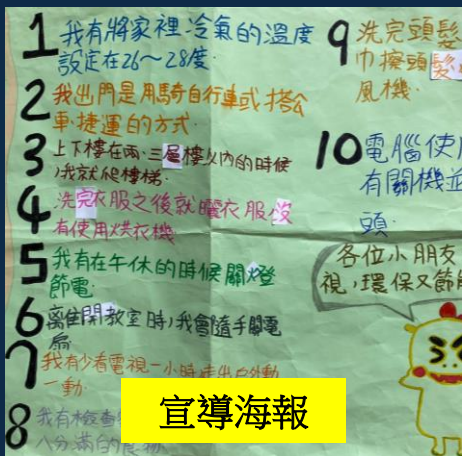 1 我有將家裡冷氣的溫度
設定在26~28度.
2 我出門是用騎自行車或搭公
車.捷運的方式.
3 上下樓在兩.三層樓以內的時候
,我就爬樓梯.
4 洗完衣服之後就曬衣服沒
有使用烘衣機
5 我有在午休的時候關燈
節電.
6 離開教室時,我會隨手關電
扇
7 我有少看電視一小時走出戶外動
一動.
8 我有檢查
八分滿的食物
9 洗完頭髮
巾擦頭髮
風機.
10 電腦使
有關機並
頭.
各位小朋友
視,環保又節能
宣導海報